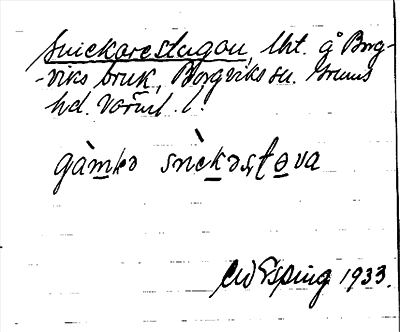 Snickarestugan, lht. å Borg-
-viks bruk, Borgviks sn. Grums
hd. Värml.
gàmkə snèckəʂʈɵva
Esping 1933.